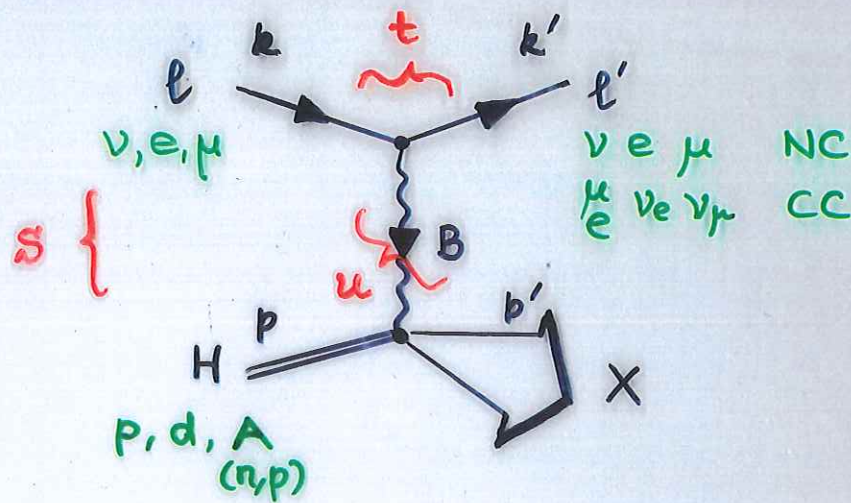 t
k k′
ℓ ℓ′
ν, e, μ ν e μ NC
μ e νe νμ CC
s { u B
p p′
H X
p, d, A
(n,p)